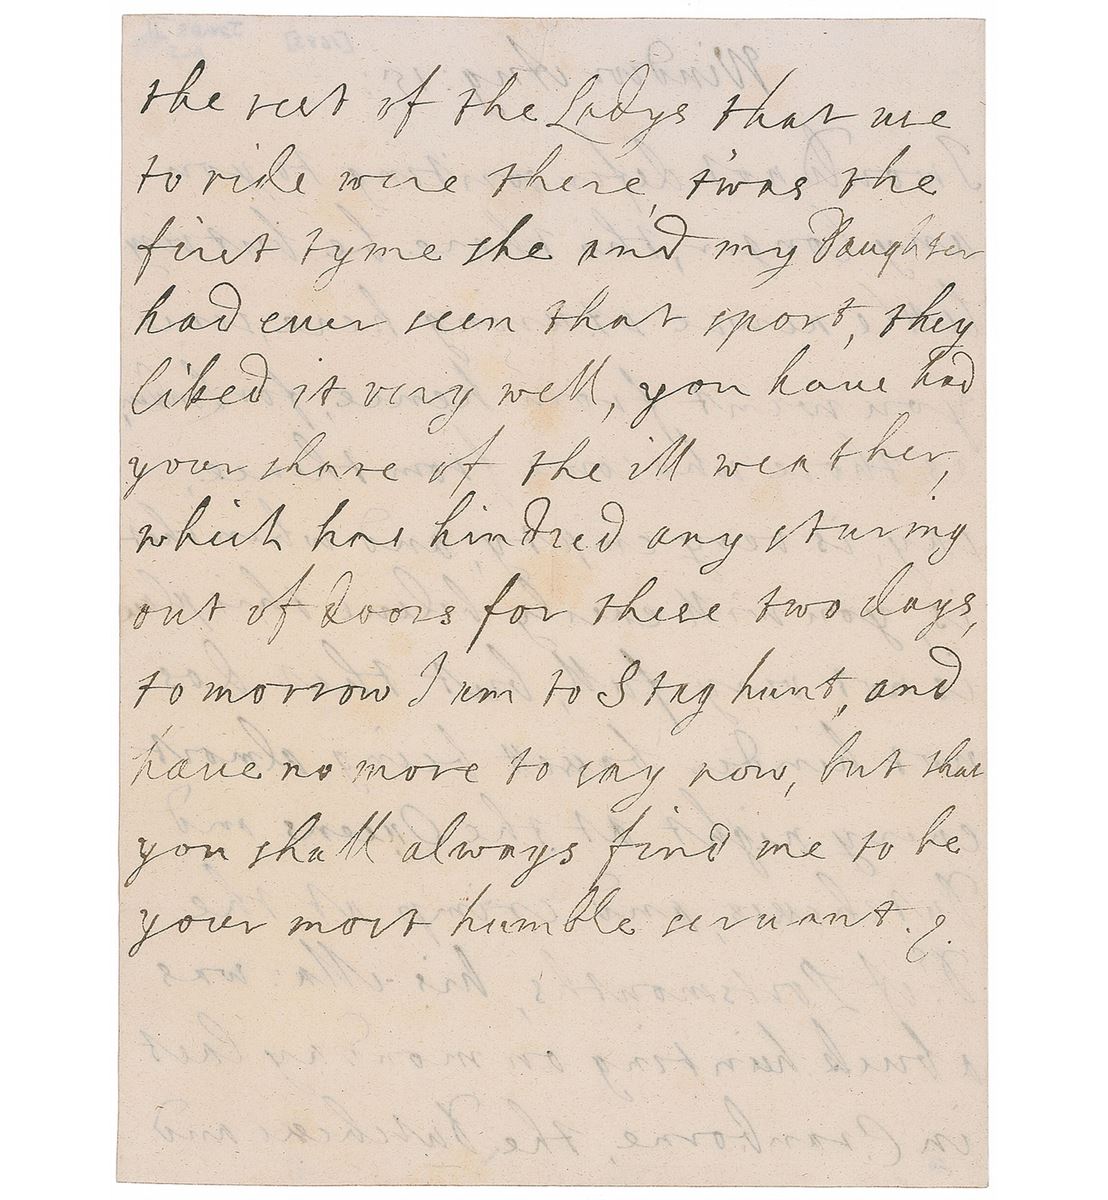 the rest of the Ladys that use
to ride were there, twas the
first tyme she and my Daughter
had ever seen that sport, they
liked it very well, you have had
your share of the ill weather,
which has hindred any sturing
out of doors for these two days,
to morrow I am to Stag hunt, and
have no more to say now, but that
you shall always find me to be
your most humble servant.